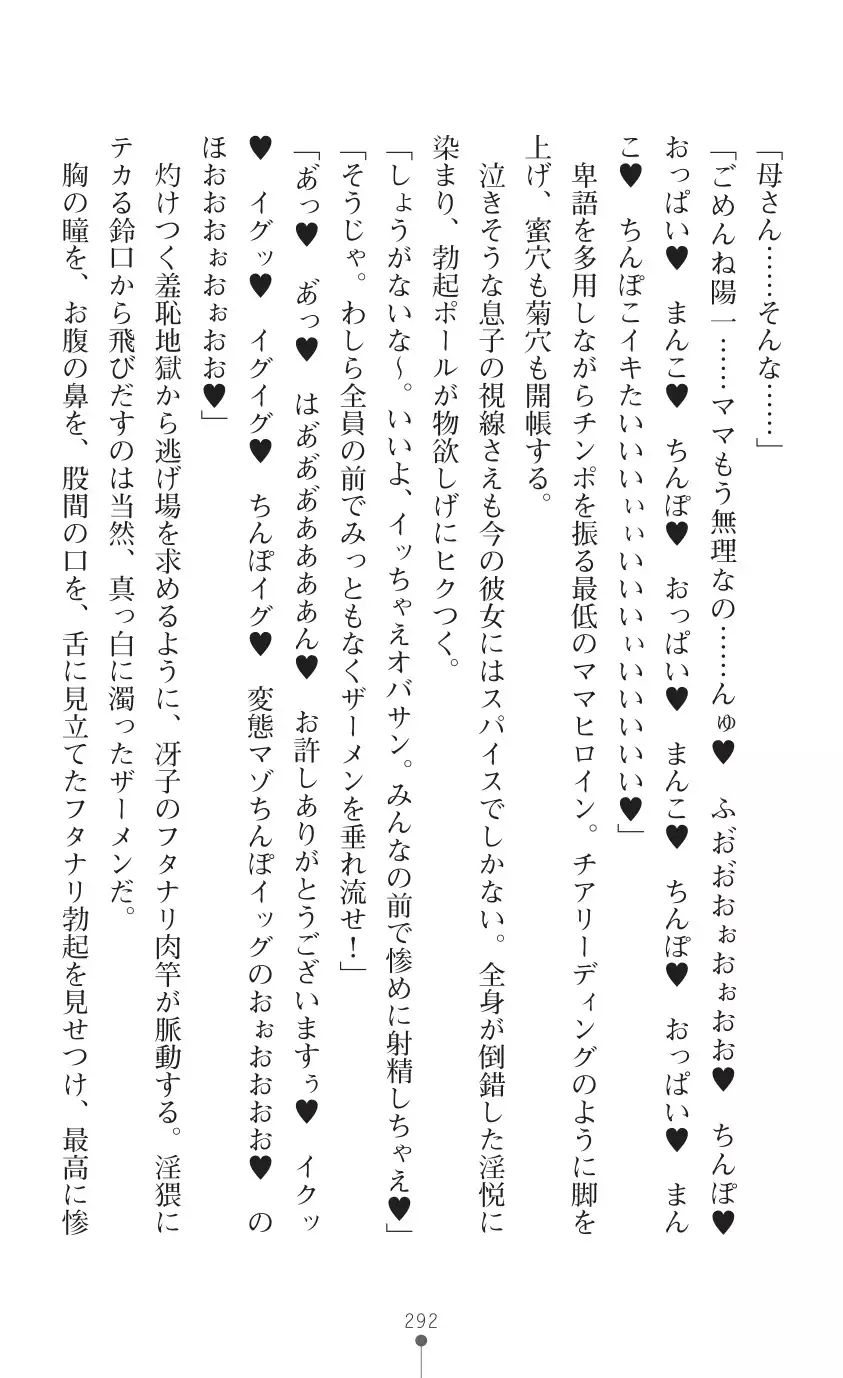 「母さん……そんな……」
「ごめんね陽一……ママもう無理なの……んゅ♥　ふお゛お゛おぉおぉおお♥　ちんぽ♥
おっぱい♥　まんこ♥　ちんぽ♥　おっぱい♥　まんこ♥　ちんぽ♥　おっぱい♥　まん
こ♥　ちんぽこイキたいいいぃぃいいいいぃいいいいい♥」
　卑語を多用しながらチンポを振る最低のママヒロイン。チアリーディングのように脚を
上げ、蜜穴も菊穴も開帳する。
　泣きそうな息子の視線さえも今の彼女にはスパイスでしかない。全身が倒錯した淫悦に
染まり、勃起ポールが物欲しげにヒクつく。
「しょうがないな～。いいよ、イッちゃえオバサン。みんなの前で惨めに射精しちゃえ♥」
「そうじゃ。わしら全員の前でみっともなくザーメンを垂れ流せ！」
「あ゛っ♥　あ゛っ♥　はあ゛あ゛あ゛ああああん♥　お許しありがとうございますぅ♥　イクッ
♥　イグッ♥　イグイグ♥　ちんぽイグ♥　変態マゾちんぽイッグのおぉおおおお♥　の
ほおおおぉおぉおお♥」
　灼けつく羞恥地獄から逃げ場を求めるように、冴子のフタナリ肉竿が脈動する。淫猥に
テカる鈴口から飛びだすのは当然、真っ白に濁ったザーメンだ。
　胸の瞳を、お腹の鼻を、股間の口を、舌に見立てたフタナリ勃起を見せつけ、最高に惨
292